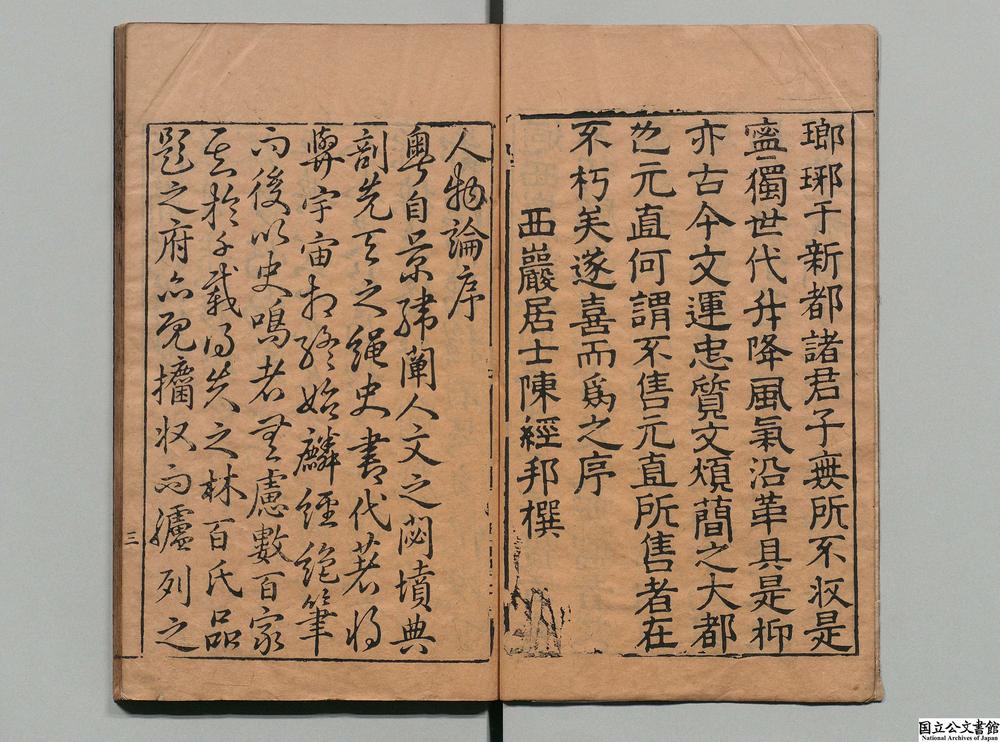 瑯琊于新都諸君子無所不收是
寍獨世代升降風氣沿革具是抑
亦古今文運忠質文煩簡之大都
也元直何謂不售元直所售者在
不朽矣遂喜而為之序
西巖居士陳經邦撰
人物論序
粵自景緯闡人文之閟墳典
剖先天之繩史書代著將
弊宇宙相終始麟經絕筆
而後以史鳴者無慮數百家
其於千載得失之林百氏品
題之府亦既擴收而臚列之
三
国立公文書館
National Archives of Japan